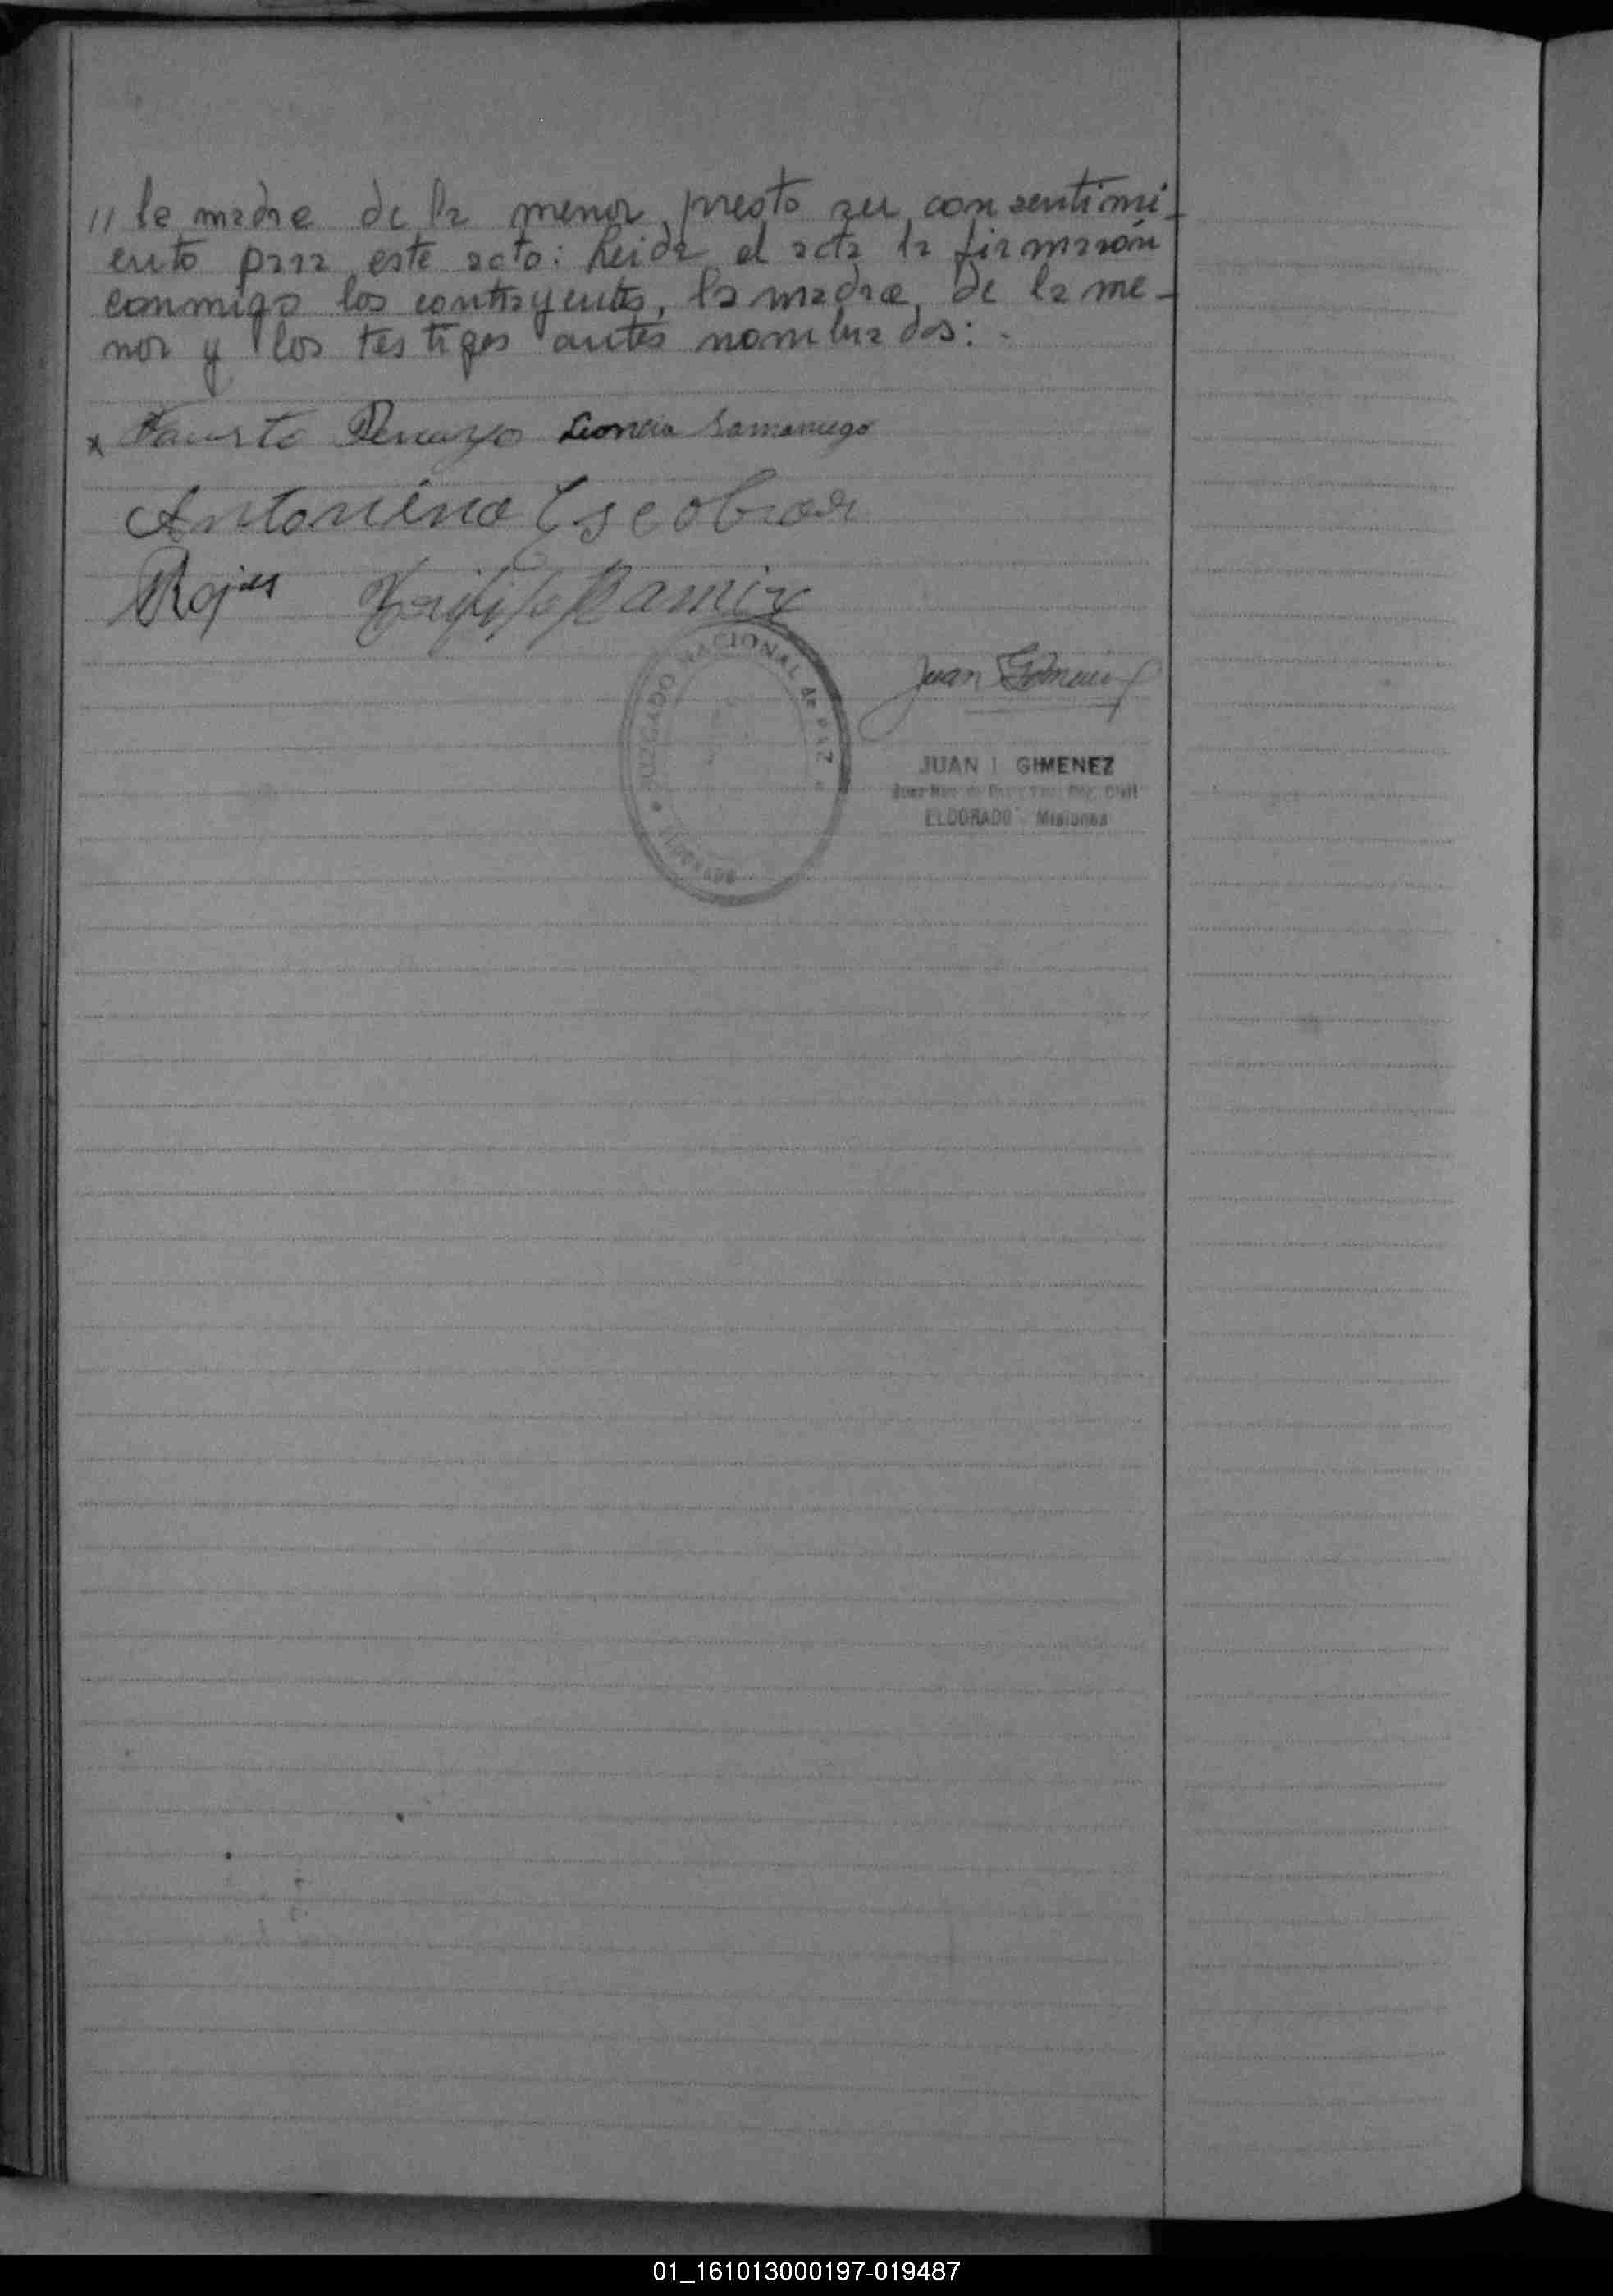 // la madre de la menor, presto su consentimi-
ento para este acto: Leida el acta la firmarón
conmigo los contrayentes, la madre, de la me-
nor y los testigos antes nombrados: -
x Fausto Leoncia Samaniego
Antonina Escobar
Rojas Ramirez
JUZGADO NACIONAL de PAZ
ELDORADO
Juan Gimenez
JUAN I GIMENEZ
Juez Nac. de Paz y Enc. Reg. Civil
ELDORADO - Misiones
01_161013000197-019487